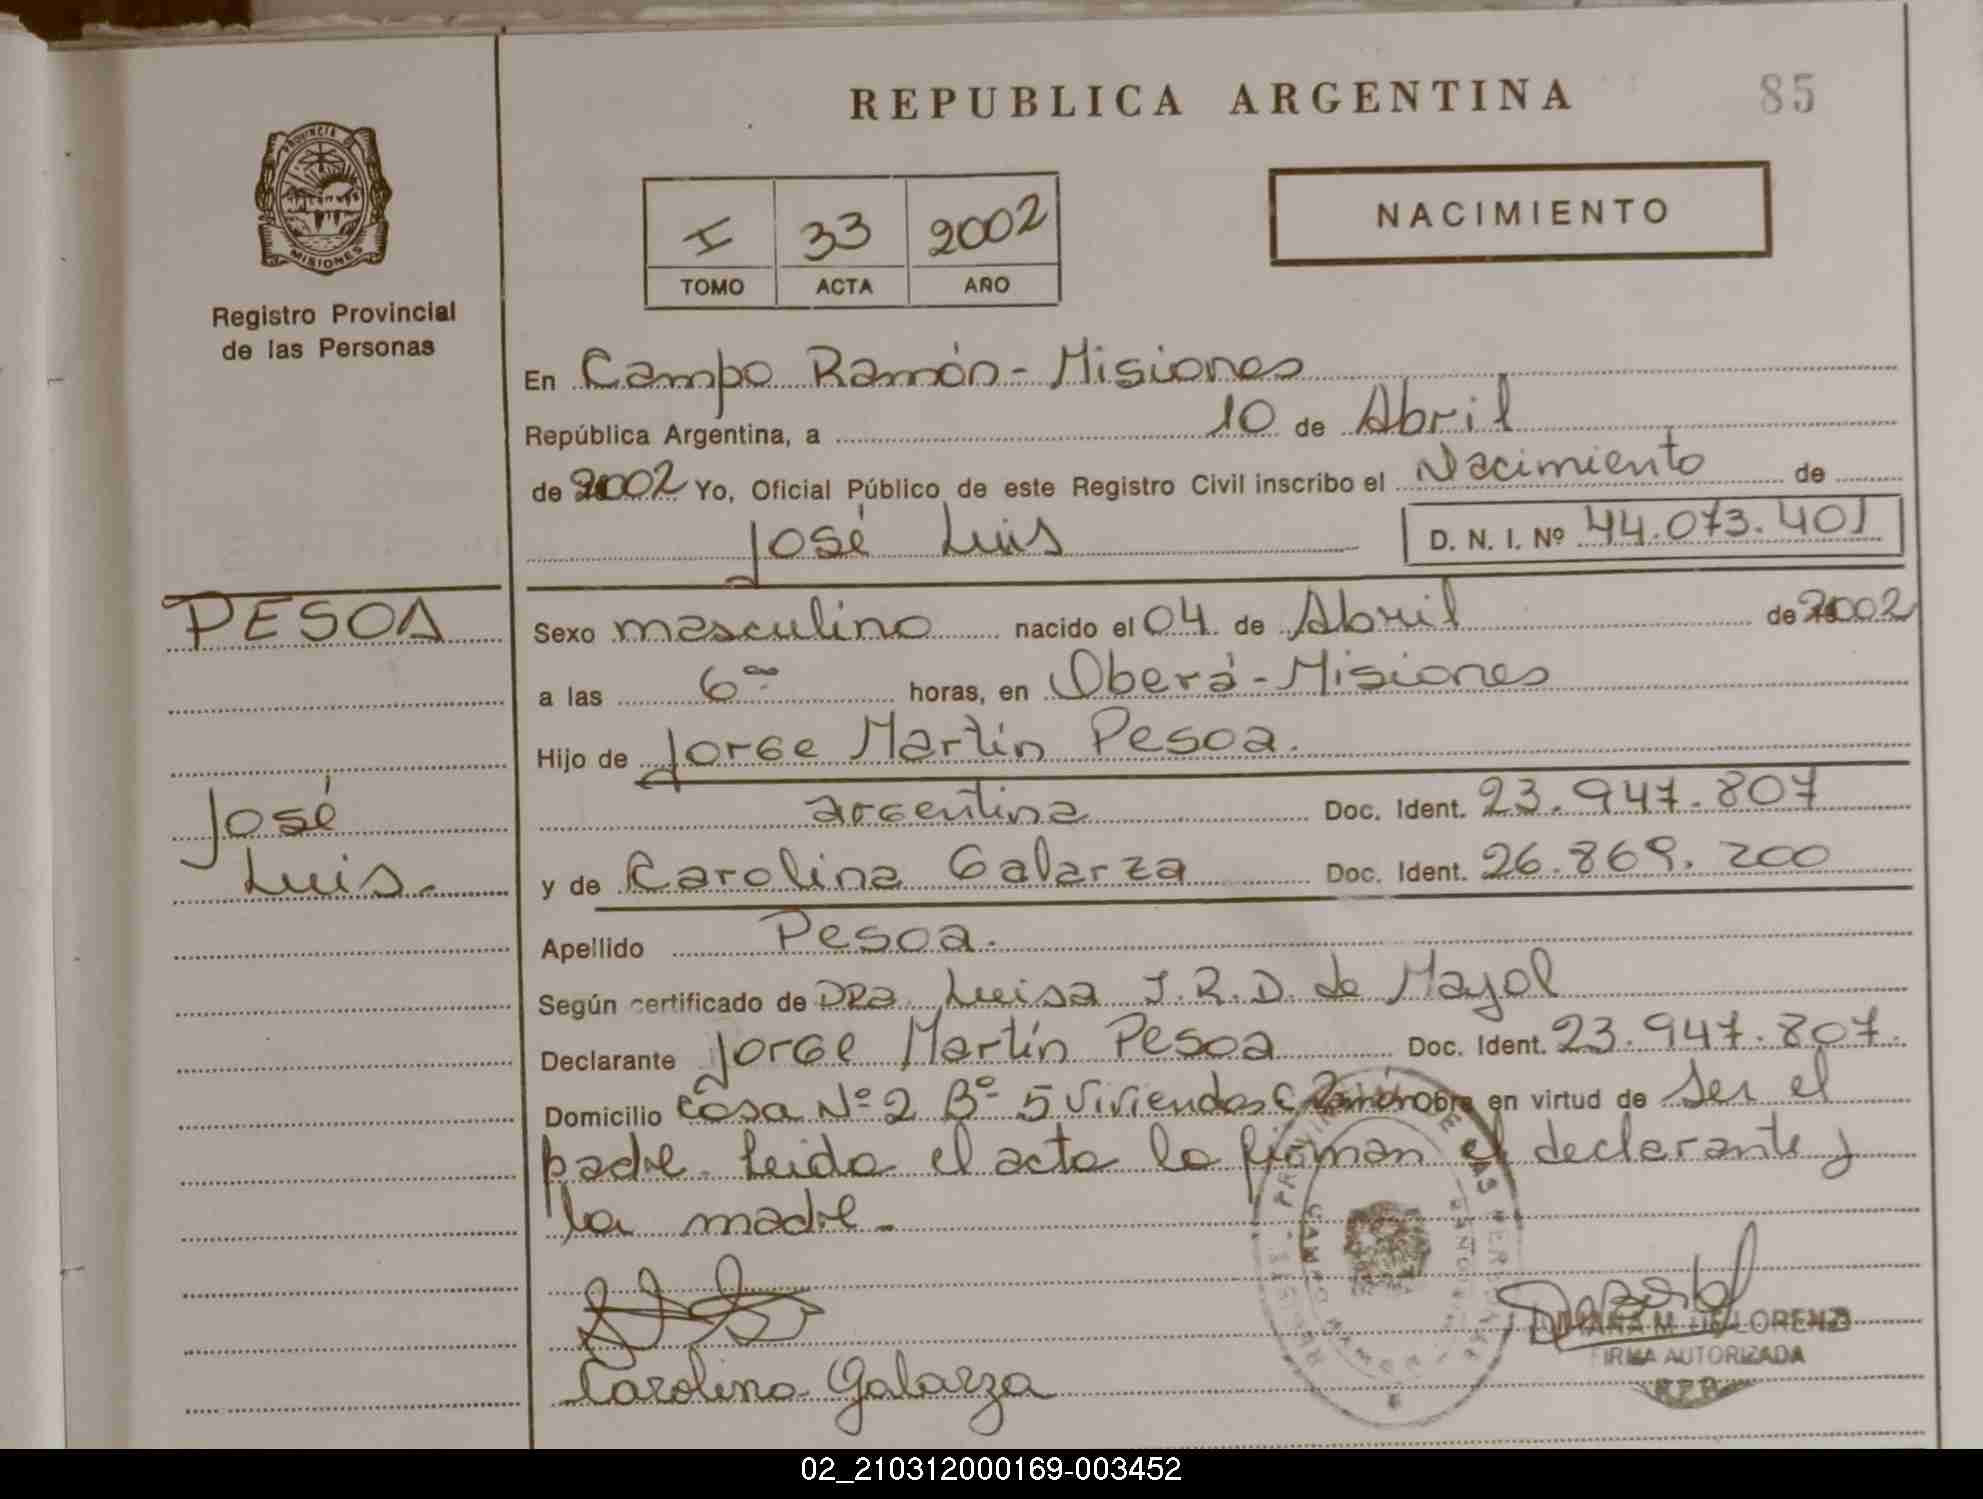 REPUBLICA ARGENTINA
85
PROVINCIA DE
MISIONES
Registro Provincial
de las Personas
I 33 2002
TOMO ACTA AÑO
NACIMIENTO
En Campo Ramón - Misiones
República Argentina, a 10 de Abril
de 2002 Yo, Oficial Público de este Registro Civil inscribo el Nacimiento de
José Luis D. N. I. Nº 44.073.401
PESOA
José
Luis.-
Sexo masculino nacido el 04 de Abril de 2002
a las 6 horas, en Oberá - Misiones
Hijo de Jorge Martín Pesoa.
argentina Doc. Ident. 23.947.807
y de Carolina Galarza Doc. Ident. 26.869.200
Apellido Pesoa.
Según certificado de DRa. Luisa J.R.D. de Mayol
Declarante Jorge Martín Pesoa Doc. Ident. 23.947.807.
Domicilio Casa Nº 2 Bº 5 Viviendas C. Ramón obra en virtud de ser el
padre. Leida el acta la firman el declarante y
la madre.-
Carolina Galarza
DE LORENZO
FIRMA AUTORIZADA
R.P.P.
02_210312000169-003452